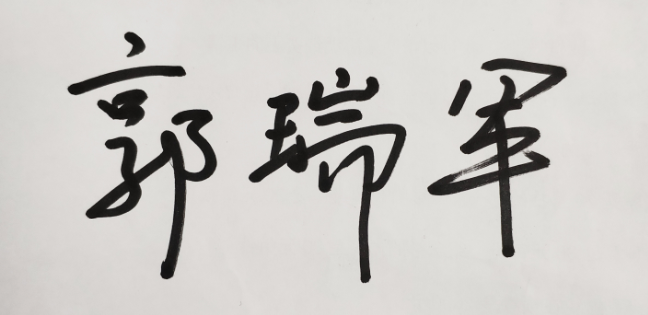 郭瑞军